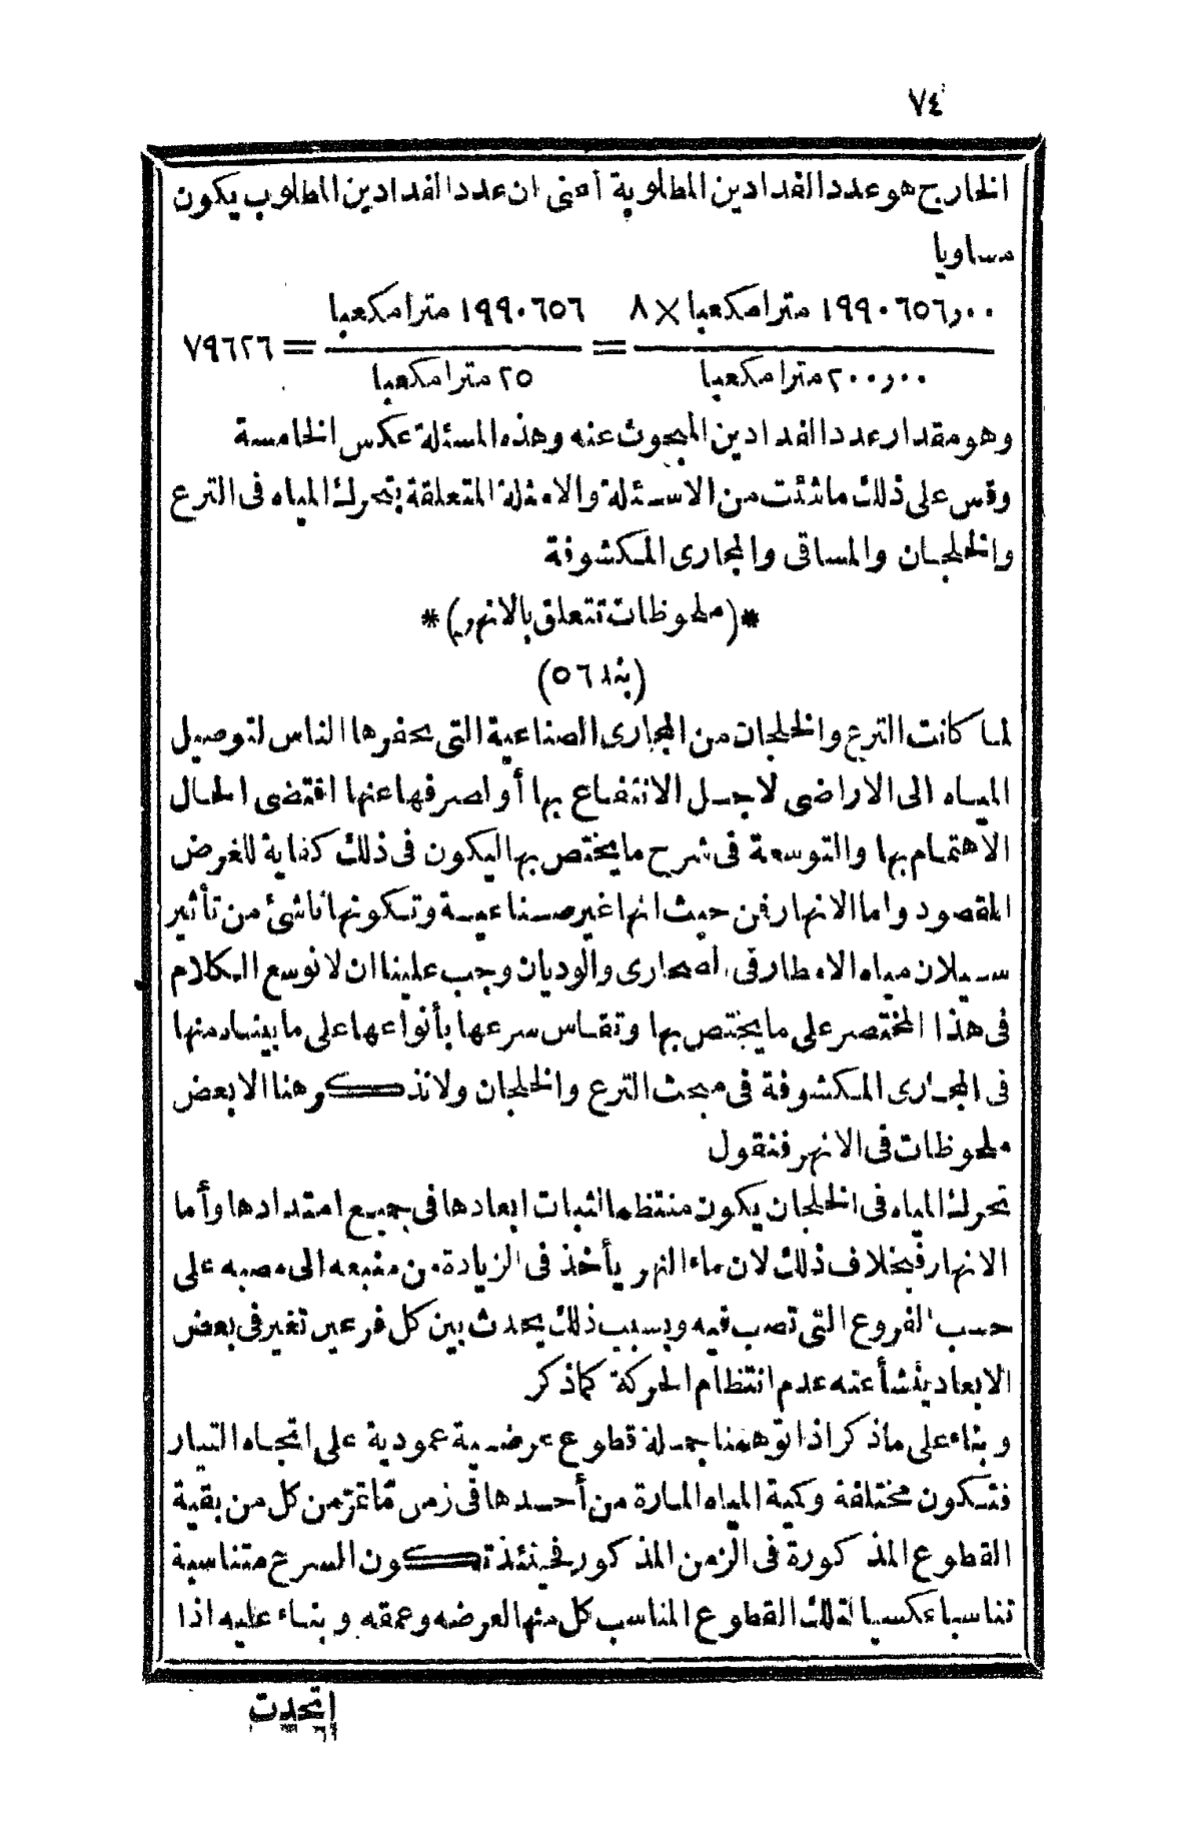 ٧٤
الخارج هو عدد الفدادين المطلوبة أعنى ان عدد الفدادين المطلوب يكون
مساويا
١٩٩٠٦٥٦,٠٠ مترا مكعبا × ٨ / ٢٠٠,٠٠ مترا مكعبا = ١٩٩٠٦٥٦ مترا مكعبا / ٢٥ مترا مكعبا = ٧٩٦٢٦
وهو مقدار عدد الفدادين المبحوث عنه وهذه المسئلة عكس الخامسة
وقس على ذلك ما شئت من الاسئلة والامثلة المتعلقة بتحرك المياه فى الترع
والخلجان والمساقى والمجارى المكشوفة
*(ملحوظات تتعلق بالانهر)*
(بند ٥٦)
لما كانت الترع والخلجان من المجارى الصناعية التى يحفرها الناس لتوصيل
المياه الى الاراضى لاجل الانتفاع بها أو لصرفها عنها اقتضى الحال
الاهتمام بها والتوسعة فى شرح ما يختص بها ليكون فى ذلك كفاية للغرض
المقصود واما الانهار فمن حيث انها غير صناعية وتكونها ناشئ من تأثير
سيلان مياه الامطار فى الصحارى والوديان وجب علينا ان لا نوسع الكلام
فى هذا المختصر على ما يختص بها وتقاس سرعها بأنواعها على ما بيناه منها
فى المجارى المكشوفة فى مبحث الترع والخلجان ولا نذكر هنا الا بعض
ملحوظات فى الانهر فنقول
تحرك المياه فى الخلجان يكون منتظما لثبات ابعادها فى جميع امتدادها وأما
الانهار فبخلاف ذلك لان ماء النهر يأخذ فى الزيادة من منبعه الى مصبه على
حسب الفروع التى تصب فيه وبسبب ذلك يحدث بين كل فرعين تغير فى بعض
الابعاد ينشأ عنه عدم انتظام الحركة كما ذكر
وبناء على ما ذكر اذا توهمنا جملة قطوع عرضية عمودية على اتجاه التيار
فتكون مختلفة وكمية المياه المارة من أحدها فى زمن ما تمر من كل من بقية
القطوع المذكورة فى الزمن المذكور فحينئذ تكون السرع متناسبة
تناسبا عكسيا لتلك القطوع المناسب كل منها لعرضه وعمقه وبناء عليه اذا
اتحدت